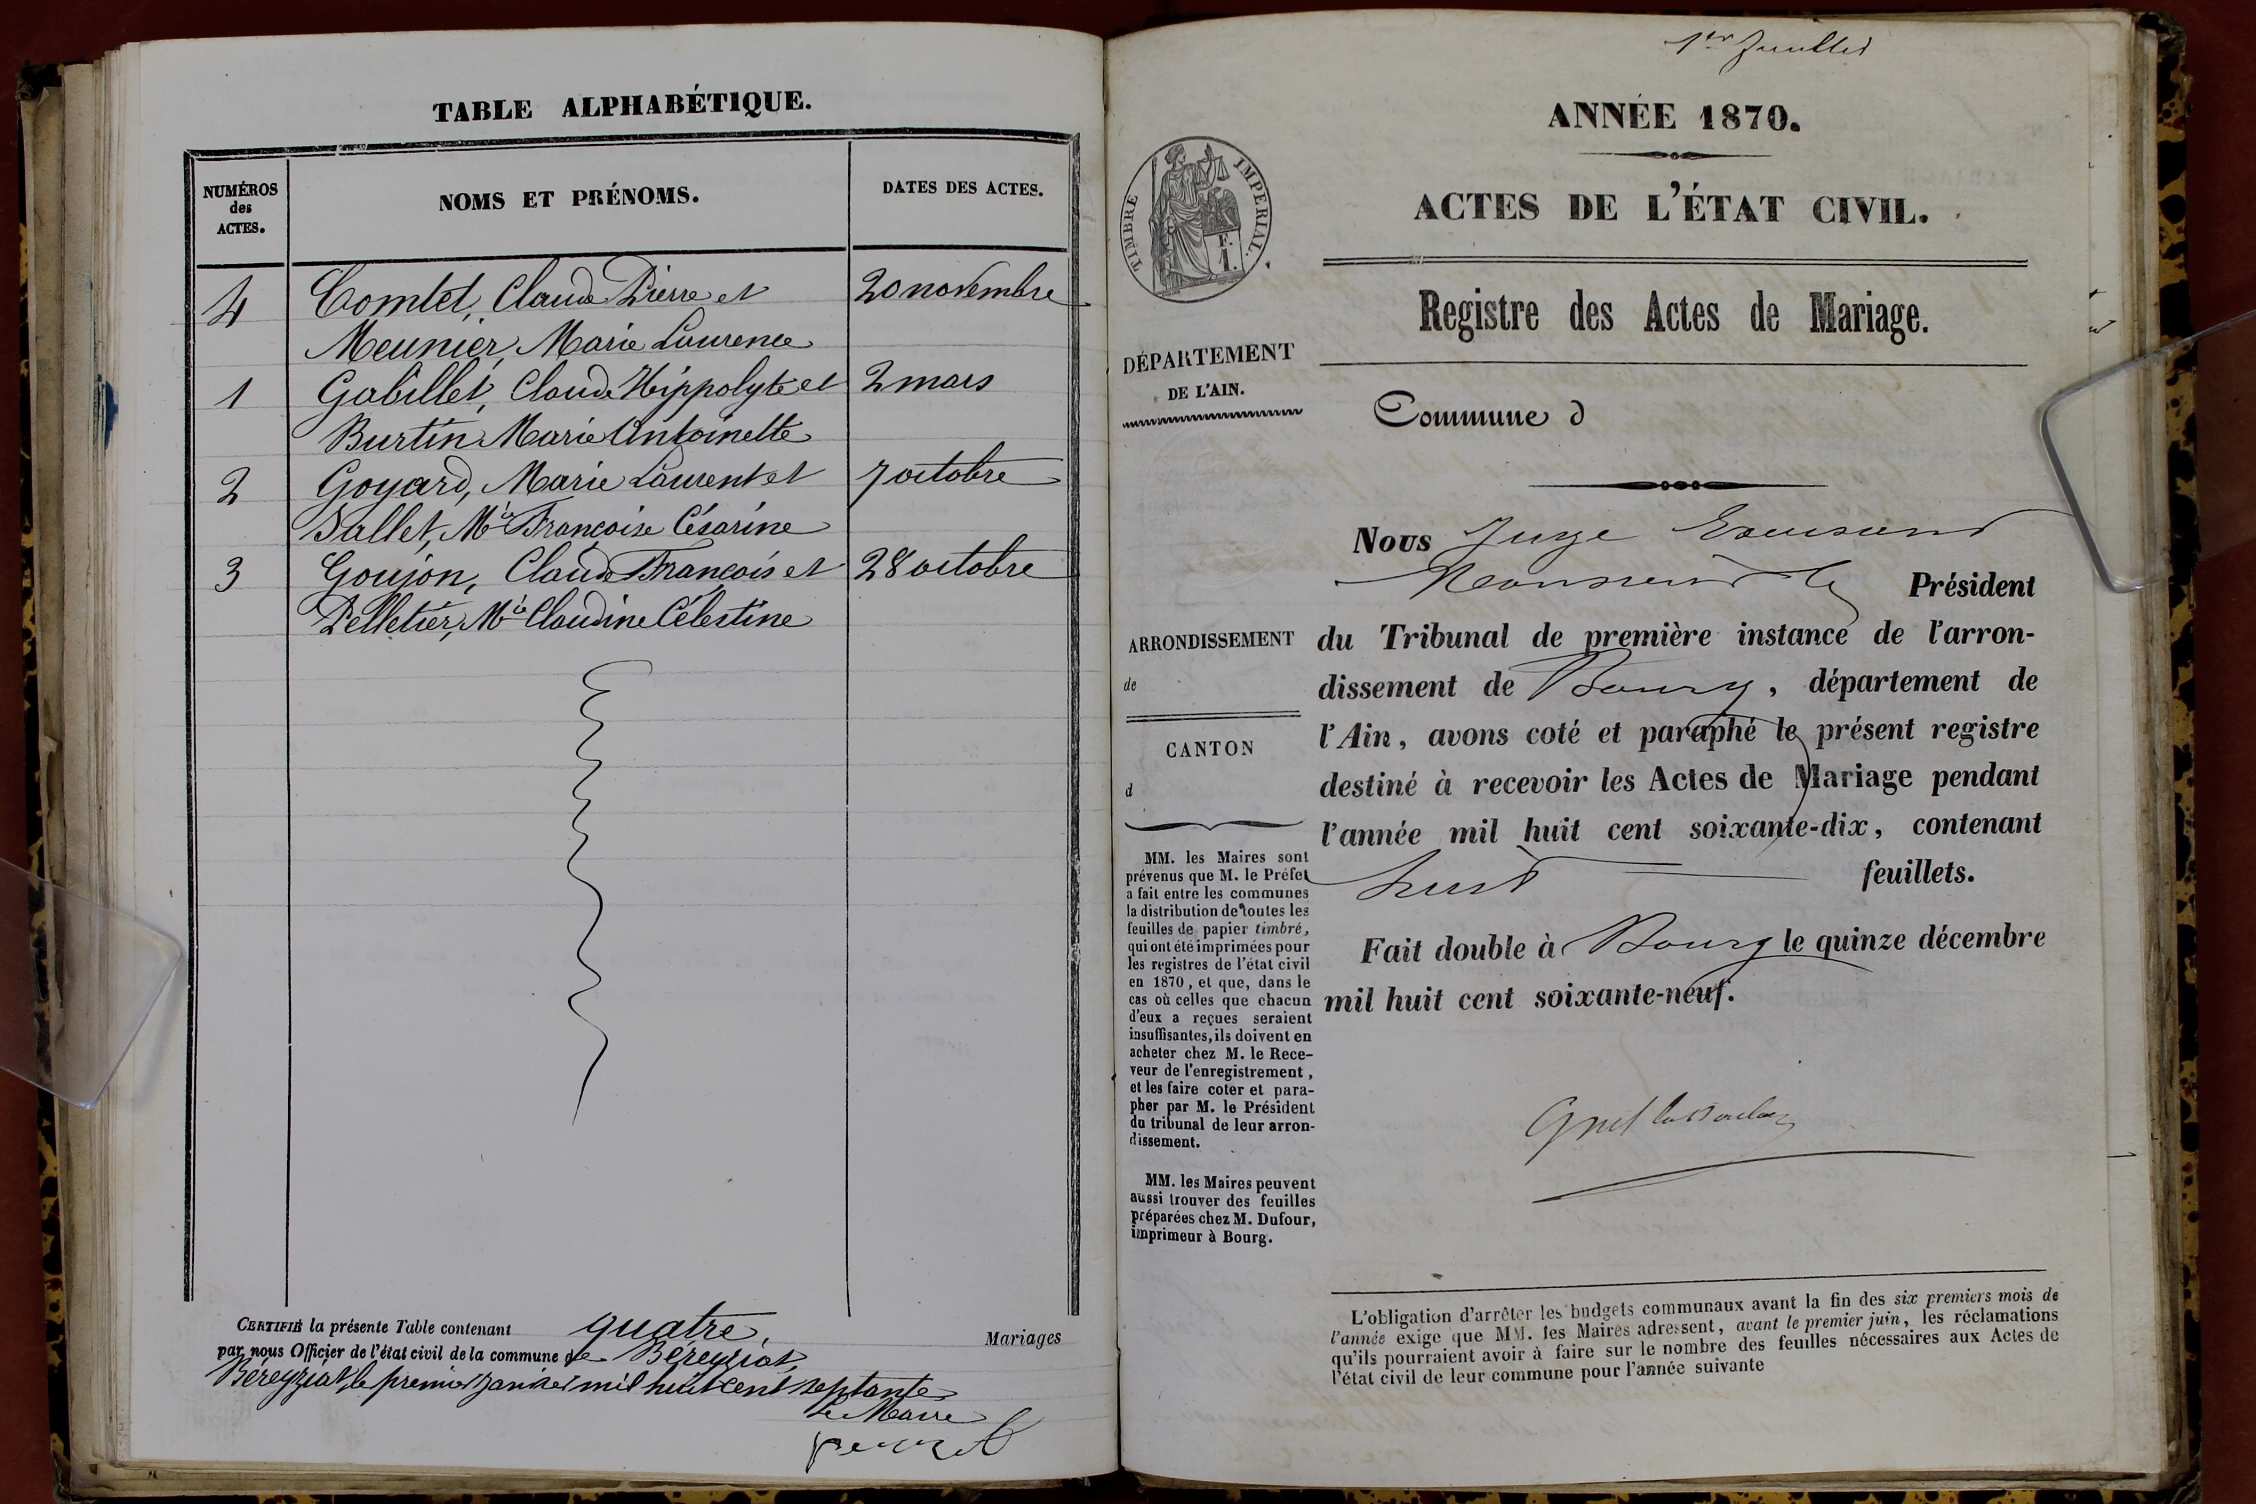 TABLE ALPHABÉTIQUE.
NUMÉROS
des
ACTES.
NOMS ET PRÉNOMS.
DATES DES ACTES.
4 Comtet, Claude Pierre et 20 novembre
Meunier, Marie Laurence
1 Gabillet, Claude Hippolyte et 2 mars
Burtin Marie Antoinette
2 Goyard, Marie Laurent et 7 octobre
Sallet, Mie Françoise Césarine
3 Goujon, Claude François et 28 octobre
Pelletier, Mie Claudine Célestine
CERTIFIÉ la présente Table contenant quatre, Mariages
par nous Officier de l'état civil de la commune de Béréyziat,
Béréyziat, le premier janvier mil huit cent septante
Le Maire
1er feuillet
ANNÉE 1870.
ACTES DE L'ÉTAT CIVIL.
TIMBRE IMPÉRIAL.
F.
1.
Registre des Actes de Mariage.
DÉPARTEMENT
DE L'AIN.
Commune d
ARRONDISSEMENT
de
CANTON
d
MM. les Maires sont
prévenus que M. le Préfet
a fait entre les communes
la distribution de toutes les
feuilles de papier timbré,
qui ont été imprimées pour
les registres de l'état civil
en 1870, et que, dans le
cas où celles que chacun
d'eux a reçues seraient
insuffisantes, ils doivent en
acheter chez M. le Rece-
veur de l'enregistrement,
et les faire coter et para-
pher par M. le Président
du tribunal de leur arron-
dissement.
MM. les Maires peuvent
aussi trouver des feuilles
préparées chez M. Dufour,
imprimeur à Bourg.
Nous Juge
Monsieur le Président
du Tribunal de première instance de l'arron-
dissement de Bourg, département de
l'Ain, avons coté et paraphé le présent registre
destiné à recevoir les Actes de Mariage pendant
l'année mil huit cent soixante-dix, contenant
huit feuillets.
Fait double à Bourg le quinze décembre
mil huit cent soixante-neuf.
L'obligation d'arrêter les budgets communaux avant la fin des six premiers mois de
l'année exige que MM. les Maires adressent, avant le premier juin, les réclamations
qu'ils pourraient avoir à faire sur le nombre des feuilles nécessaires aux Actes de
l'état civil de leur commune pour l'année suivante